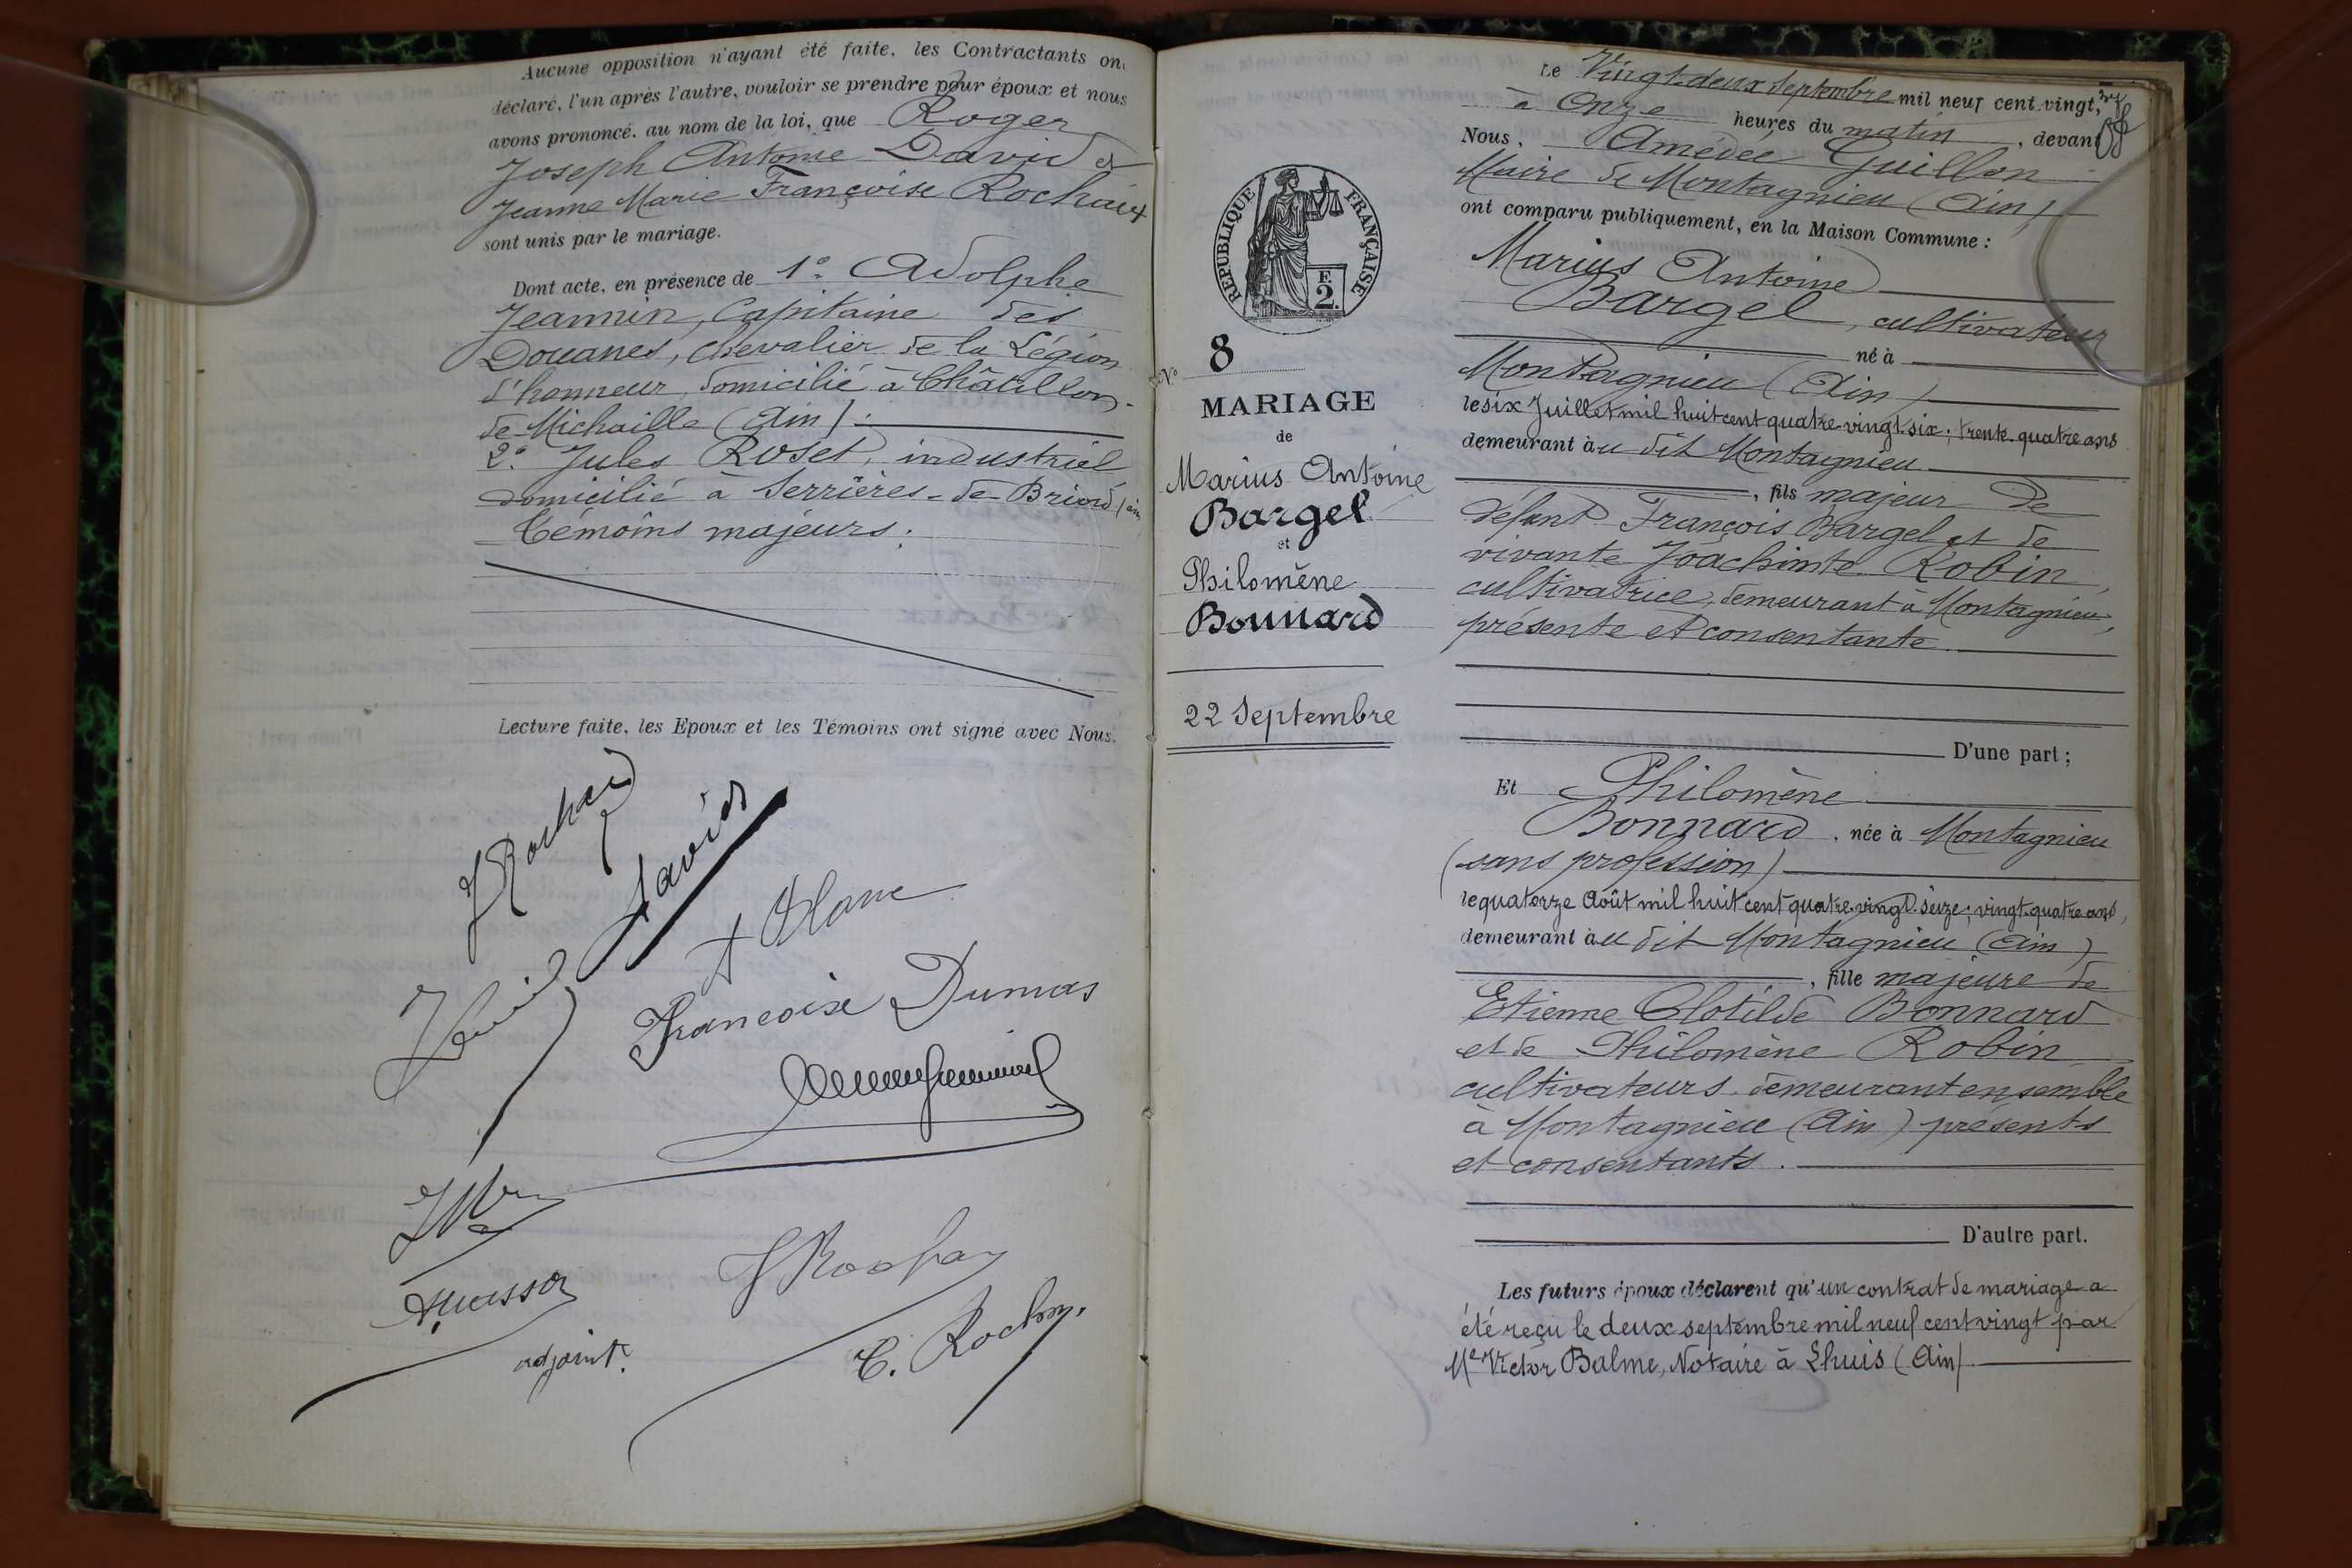 Aucune opposition n'ayant été faite, les Contractants on
déclaré, l'un après l'autre, vouloir se prendre pour époux et nous
avons prononcé, au nom de la loi, que Roger
Joseph Antoine David et
Jeanne Marie Françoise Rochaix
sont unis par le mariage.
Dont acte, en présence de 1° Adolphe
Jeannin, Capitaine des
Douanes, chevalier de la Légion
d'honneur, domicilié à Châtillon-
de-Michaille (Ain) :
2° Jules Roset, industriel
domicilié à Serrières-de-Briord (Ain
Témoins majeurs.
Lecture faite, les Epoux et les Témoins ont signé avec Nous.
David
Françoise Dumas
adjoint.
RÉPUBLIQUE FRANÇAISE
E
2.
N° 8
MARIAGE
de
Marius Antoine
Bargel
et
Philomène
Bonnard
22 Septembre
Le Vingt-deux Septembre mil neuf cent vingt,
à Onze heures du matin, devant
Nous, Amédée Guillon
Maire de Montagnieu (Ain)
ont comparu publiquement, en la Maison Commune :
Marius Antoine
Bargel, cultivateur
né à
Montagnieu (Ain)
le six Juillet mil huit cent quatre-vingt-six ; trente-quatre ans
demeurant au dit Montagnieu
, fils majeur de
défunt François Bargel et de
vivante Joachinte Robin,
cultivatrice, demeurant à Montagnieu,
présente et consentante
D'une part ;
Et Philomène
Bonnard, née à Montagnieu
(sans profession)
le quatorze Août mil huit cent quatre-vingt-seize ; vingt-quatre ans,
demeurant au dit Montagnieu (Ain)
, fille majeure de
Etienne Clotilde Bonnard
et de Philomène Robin
cultivateurs demeurant ensemble
à Montagnieu (Ain) présents
et consentants.
D'autre part.
Les futurs époux déclarent qu'un contrat de mariage a
été reçu le deux septembre mil neuf cent vingt par
Me Victor Balme, Notaire à Lhuis (Ain)